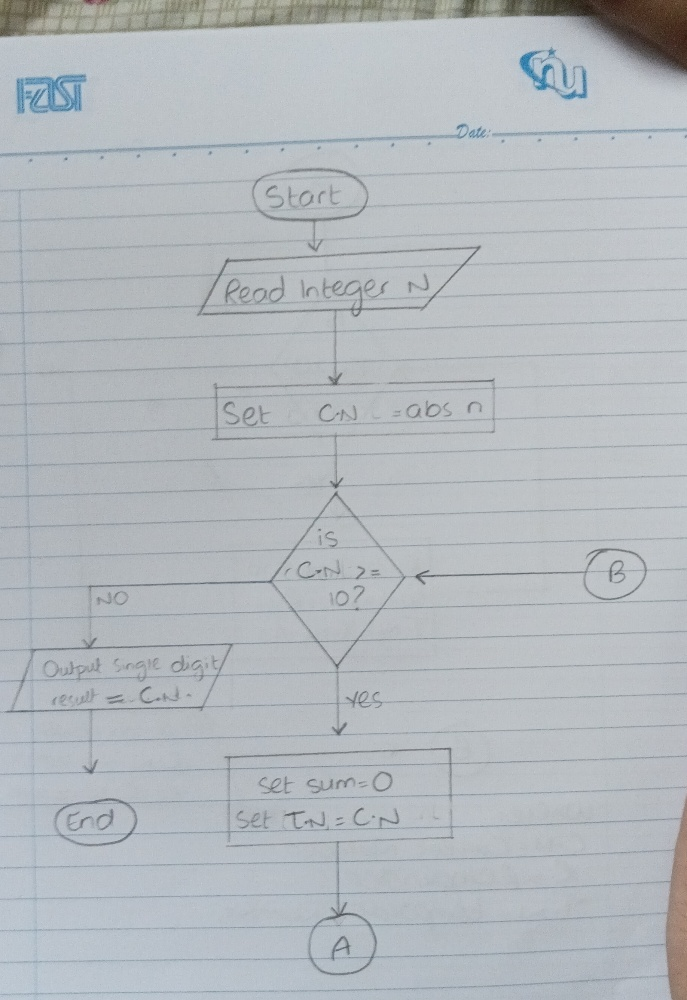 FAST
nu
Date:
Start
Read Integer N
Set C.N = abs n
is
C.N >=
10?
B
NO
Output single digit
result = C.N.
yes
set sum=0
Set T.N = C.N
End
A